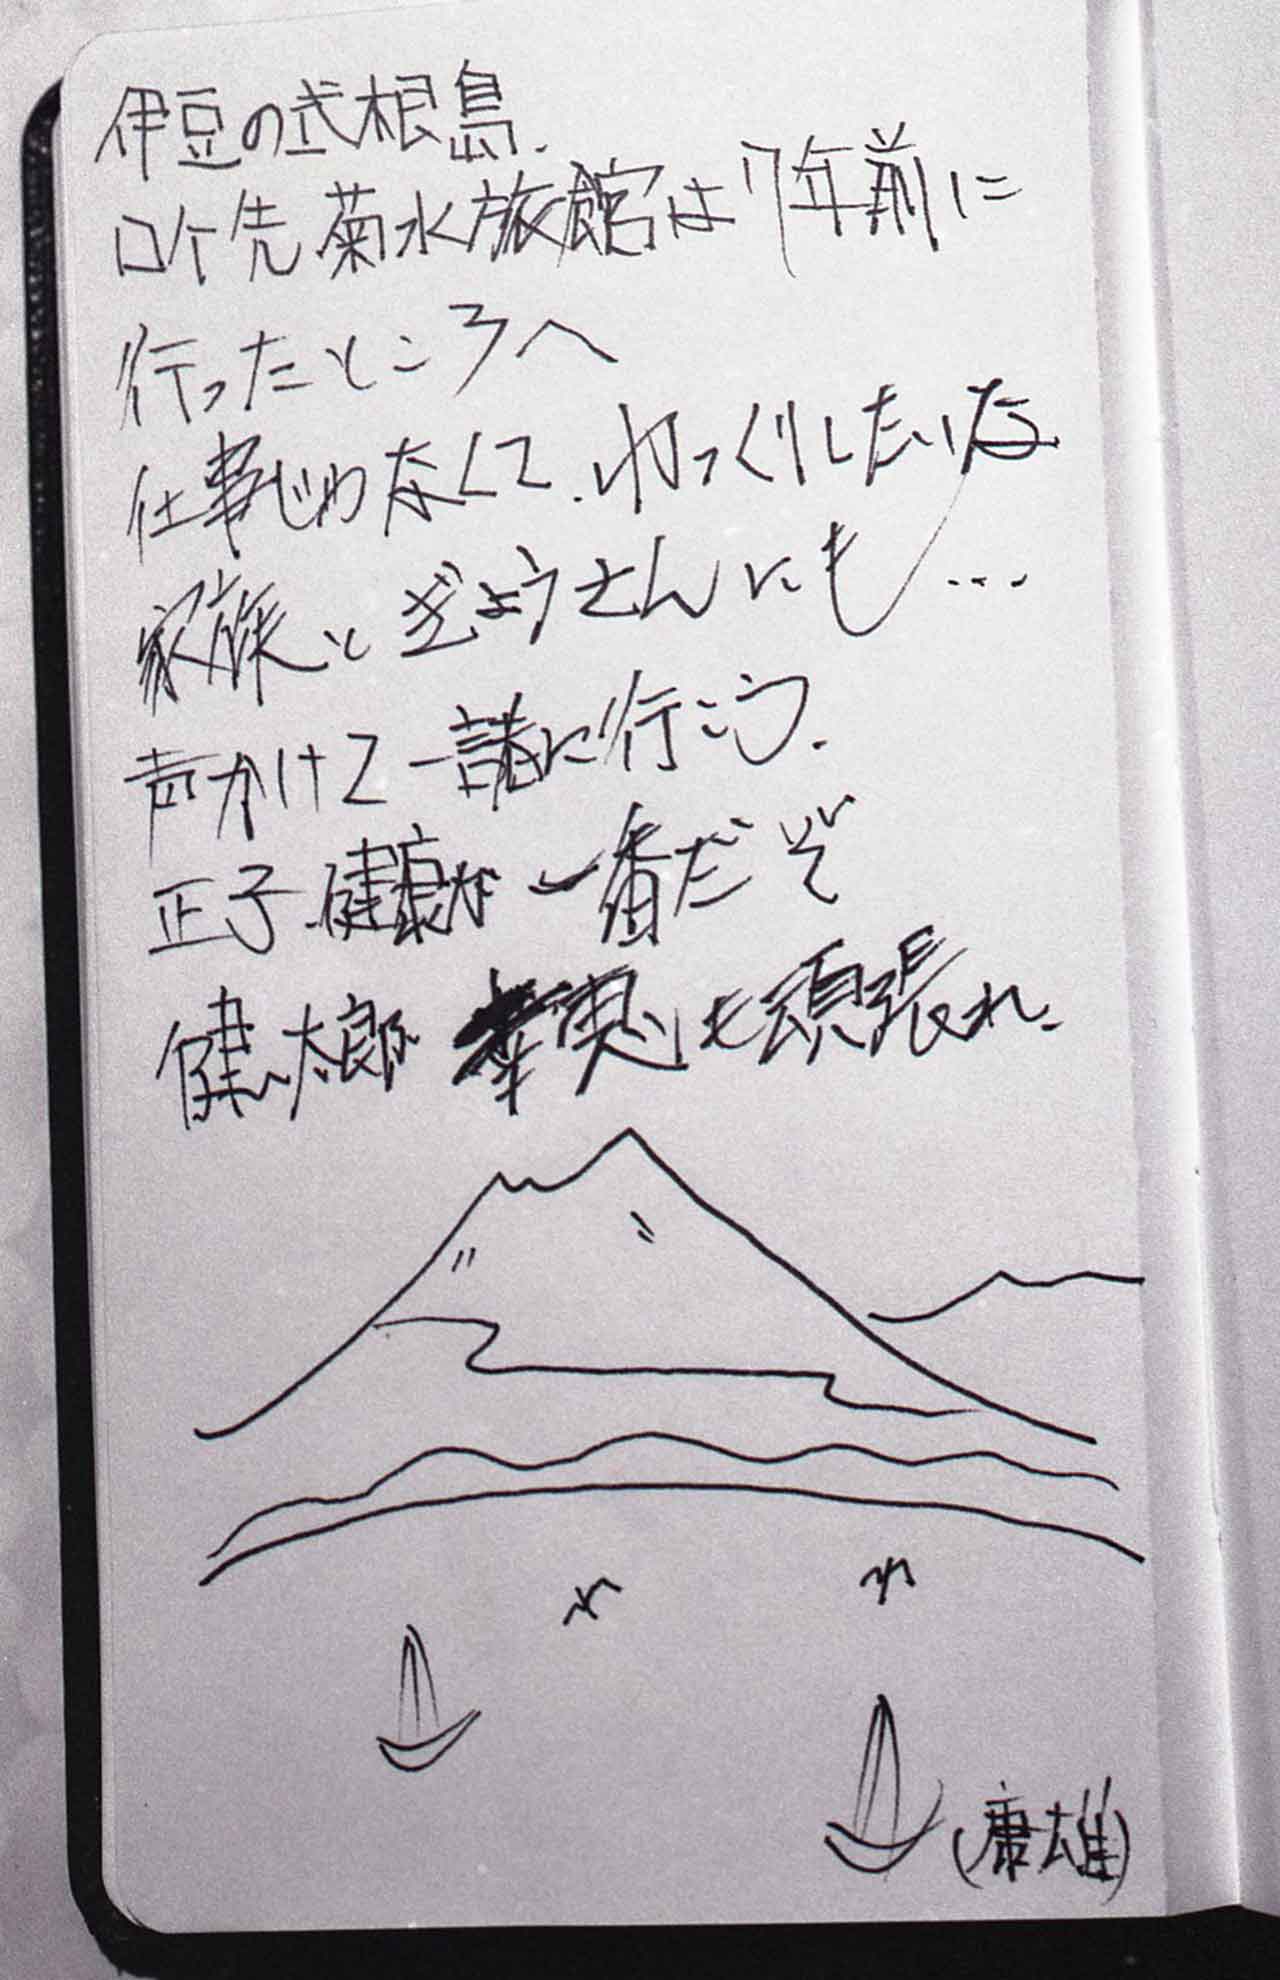 伊豆の式根島.
ロケ先 菊水旅館は 7年前に
行ったところへ
仕事じゃなくて.ゆっくりしたいな
家族とぎょうさんにも…
声かけて一諸に行こう.
正子.健康が一番だぞ
健太郎 恵も頑張れ.
(康雄)